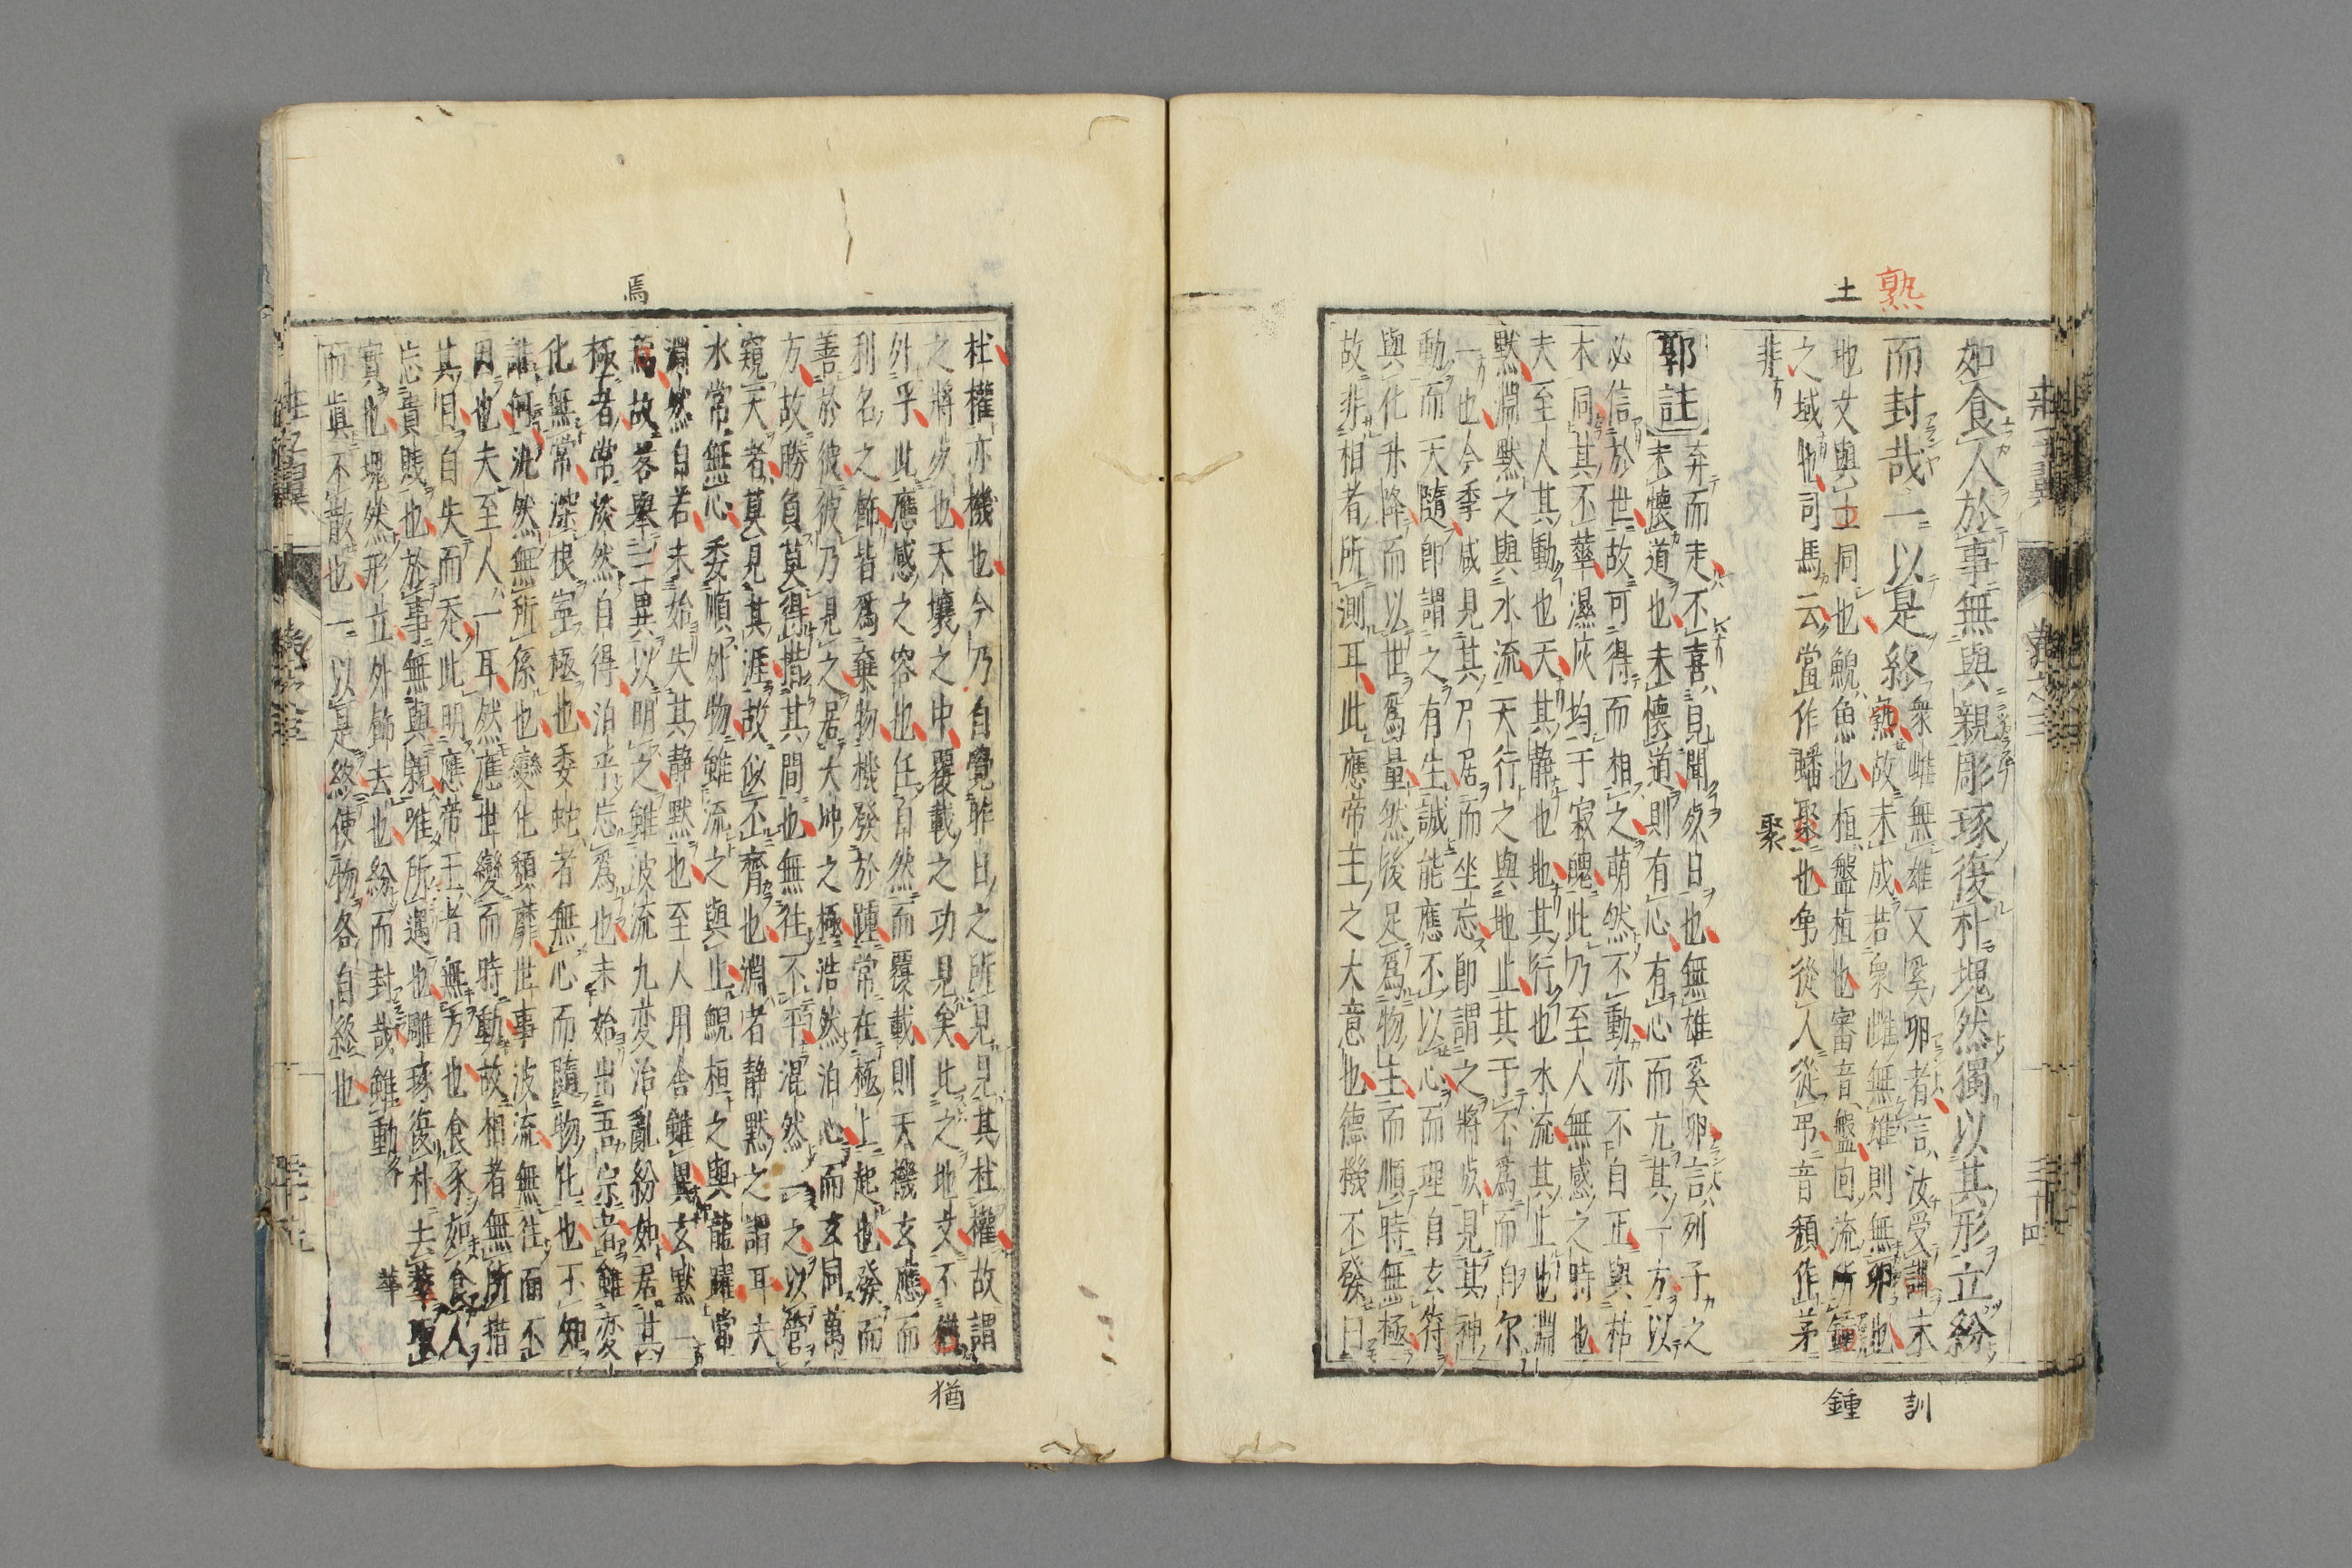 熟
土
如食人於事無與親彫琢復朴塊然獨以其形立紛
而封哉一以是終
衆雌無雄又奚卵者言汝受訓未
熟故未成若衆雌無雄則無卵也
地文與土同也鯢魚也桓盤桓也審音盤囬流所鍾
之域也司馬云當作蟠聚也弟從人從弔音頽作茅
非
聚
訓
鍾
郭註
弃而走不喜見聞死日也無雄奚卵言列子之
未懷道也未懷道則有心有心而亢其一方以
必信於世故可得而相之萌然不動亦不自正與枯
木同其不華濕灰均于寂魄此乃至人無感之時也
夫至人其動也天其静也地其行也水流其止也淵
黙淵黙之與水流天行之與地止其于不爲而自尔
一也今季咸見其尸居而坐忘即謂之將死見其神
動而天隨即謂之有生誠能應不以心而理自玄符
與化升降而以世爲量然後足爲物主而順時無極
故非相者所測耳此應帝王之大意也德機不發曰
杜權亦機也今乃自覺昨日之所見見其杜權故謂
之將死也天壤之中覆載之功見矣此之地文不猶
外乎此應感之容也任自然而覆載則天機玄應而
利名之飾皆爲棄物機發於踵常在極上起也發而
善於彼彼乃見之居大冲之極浩然泊心而玄同萬
方故勝負莫得措其間也無往不平混然一之以管
窺天者莫見其涯故似不齊也淵者静黙之謂耳夫
水常無心委順外物雖流之與止鯢桓之與龍躍常
淵然自若未始失其静黙也至人用舎雖異玄黙一
焉故畧舉三異以明之雖波流九変治亂紛如居其
極者常淡然自得泊乎忘爲也未始出吾宗者雖変
化無常深根寧極也委蛇者無心而隨物化也不知
誰何汎然無所係也變化頽靡世事波流無往而不
因也夫至人一耳然應世變而時動故相者無所措
其目自失而走此明應帝王者無方也食豕如食人
忘貴賎也於事無與親唯所遇也雕琢復朴去華
實也塊然形立外飾去也紛而封哉雖動
而眞不散也一以是終使物各自終也
焉
猶
華